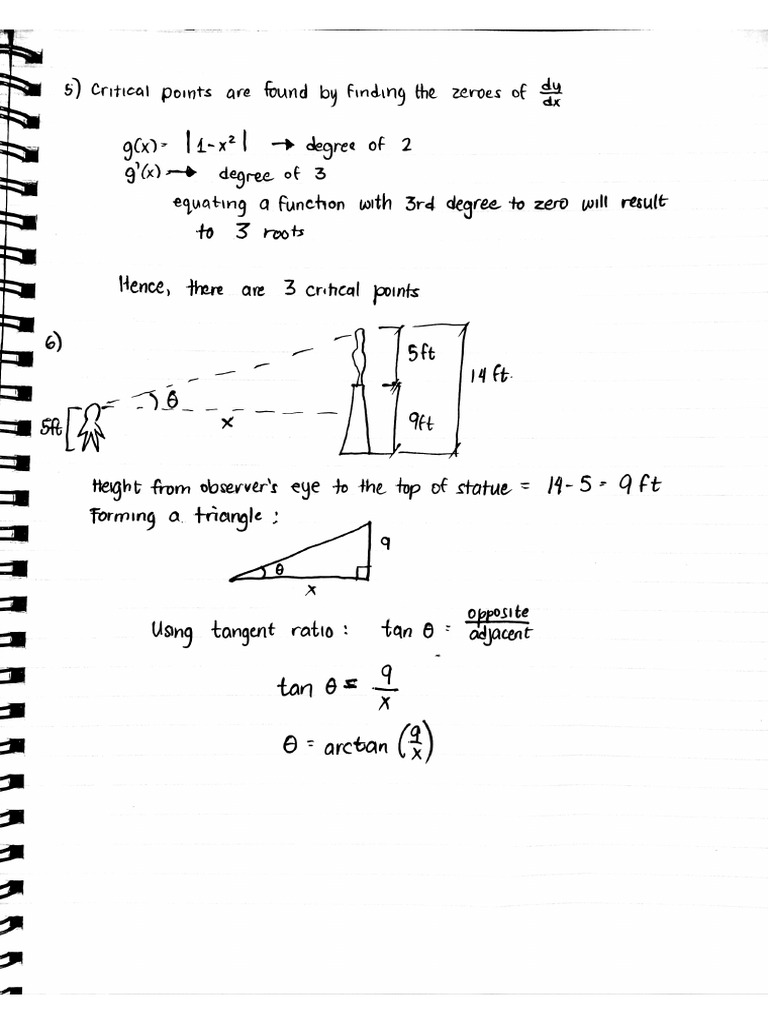 5) Critical points are found by finding the zeroes of dy/dx
g(x) = |1-x²| → degree of 2
g'(x) → degree of 3
equating a function with 3rd degree to zero will result
to 3 roots
Hence, there are 3 critical points
6)
5ft
14 ft.
θ
5ft
x
9ft
Height from observer's eye to the top of statue = 14 - 5 = 9 ft
Forming a triangle :
9
θ
x
Using tangent ratio : tan θ = opposite/adjacent
tan θ = 9/x
θ = arctan (9/x)